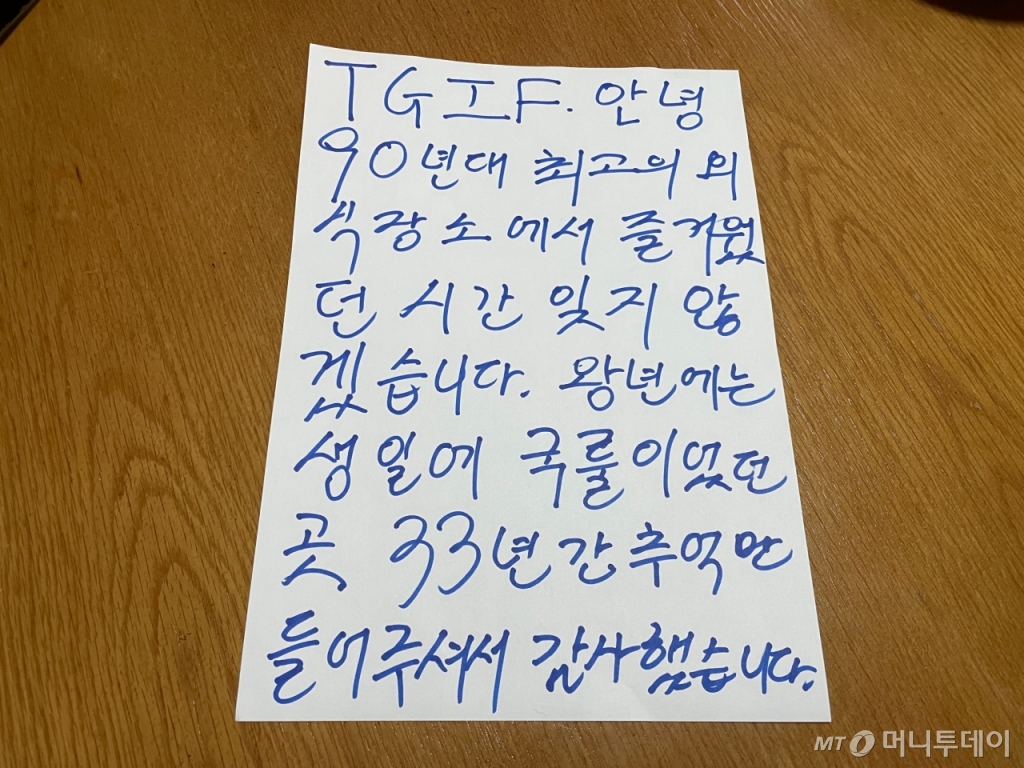 TGIF. 안녕
90년대 최고의 외
식장소에서 즐거웠
던 시간 잊지 않
겠습니다. 왕년에는
생일에 국룰이었던
곳 33년간 추억만
들어주셔서 감사했습니다.
MT 머니투데이